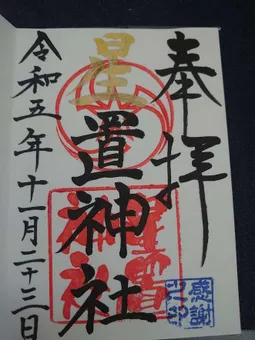 奉拝
星置神社
令和五年十一月二十三日
星置神社
感謝